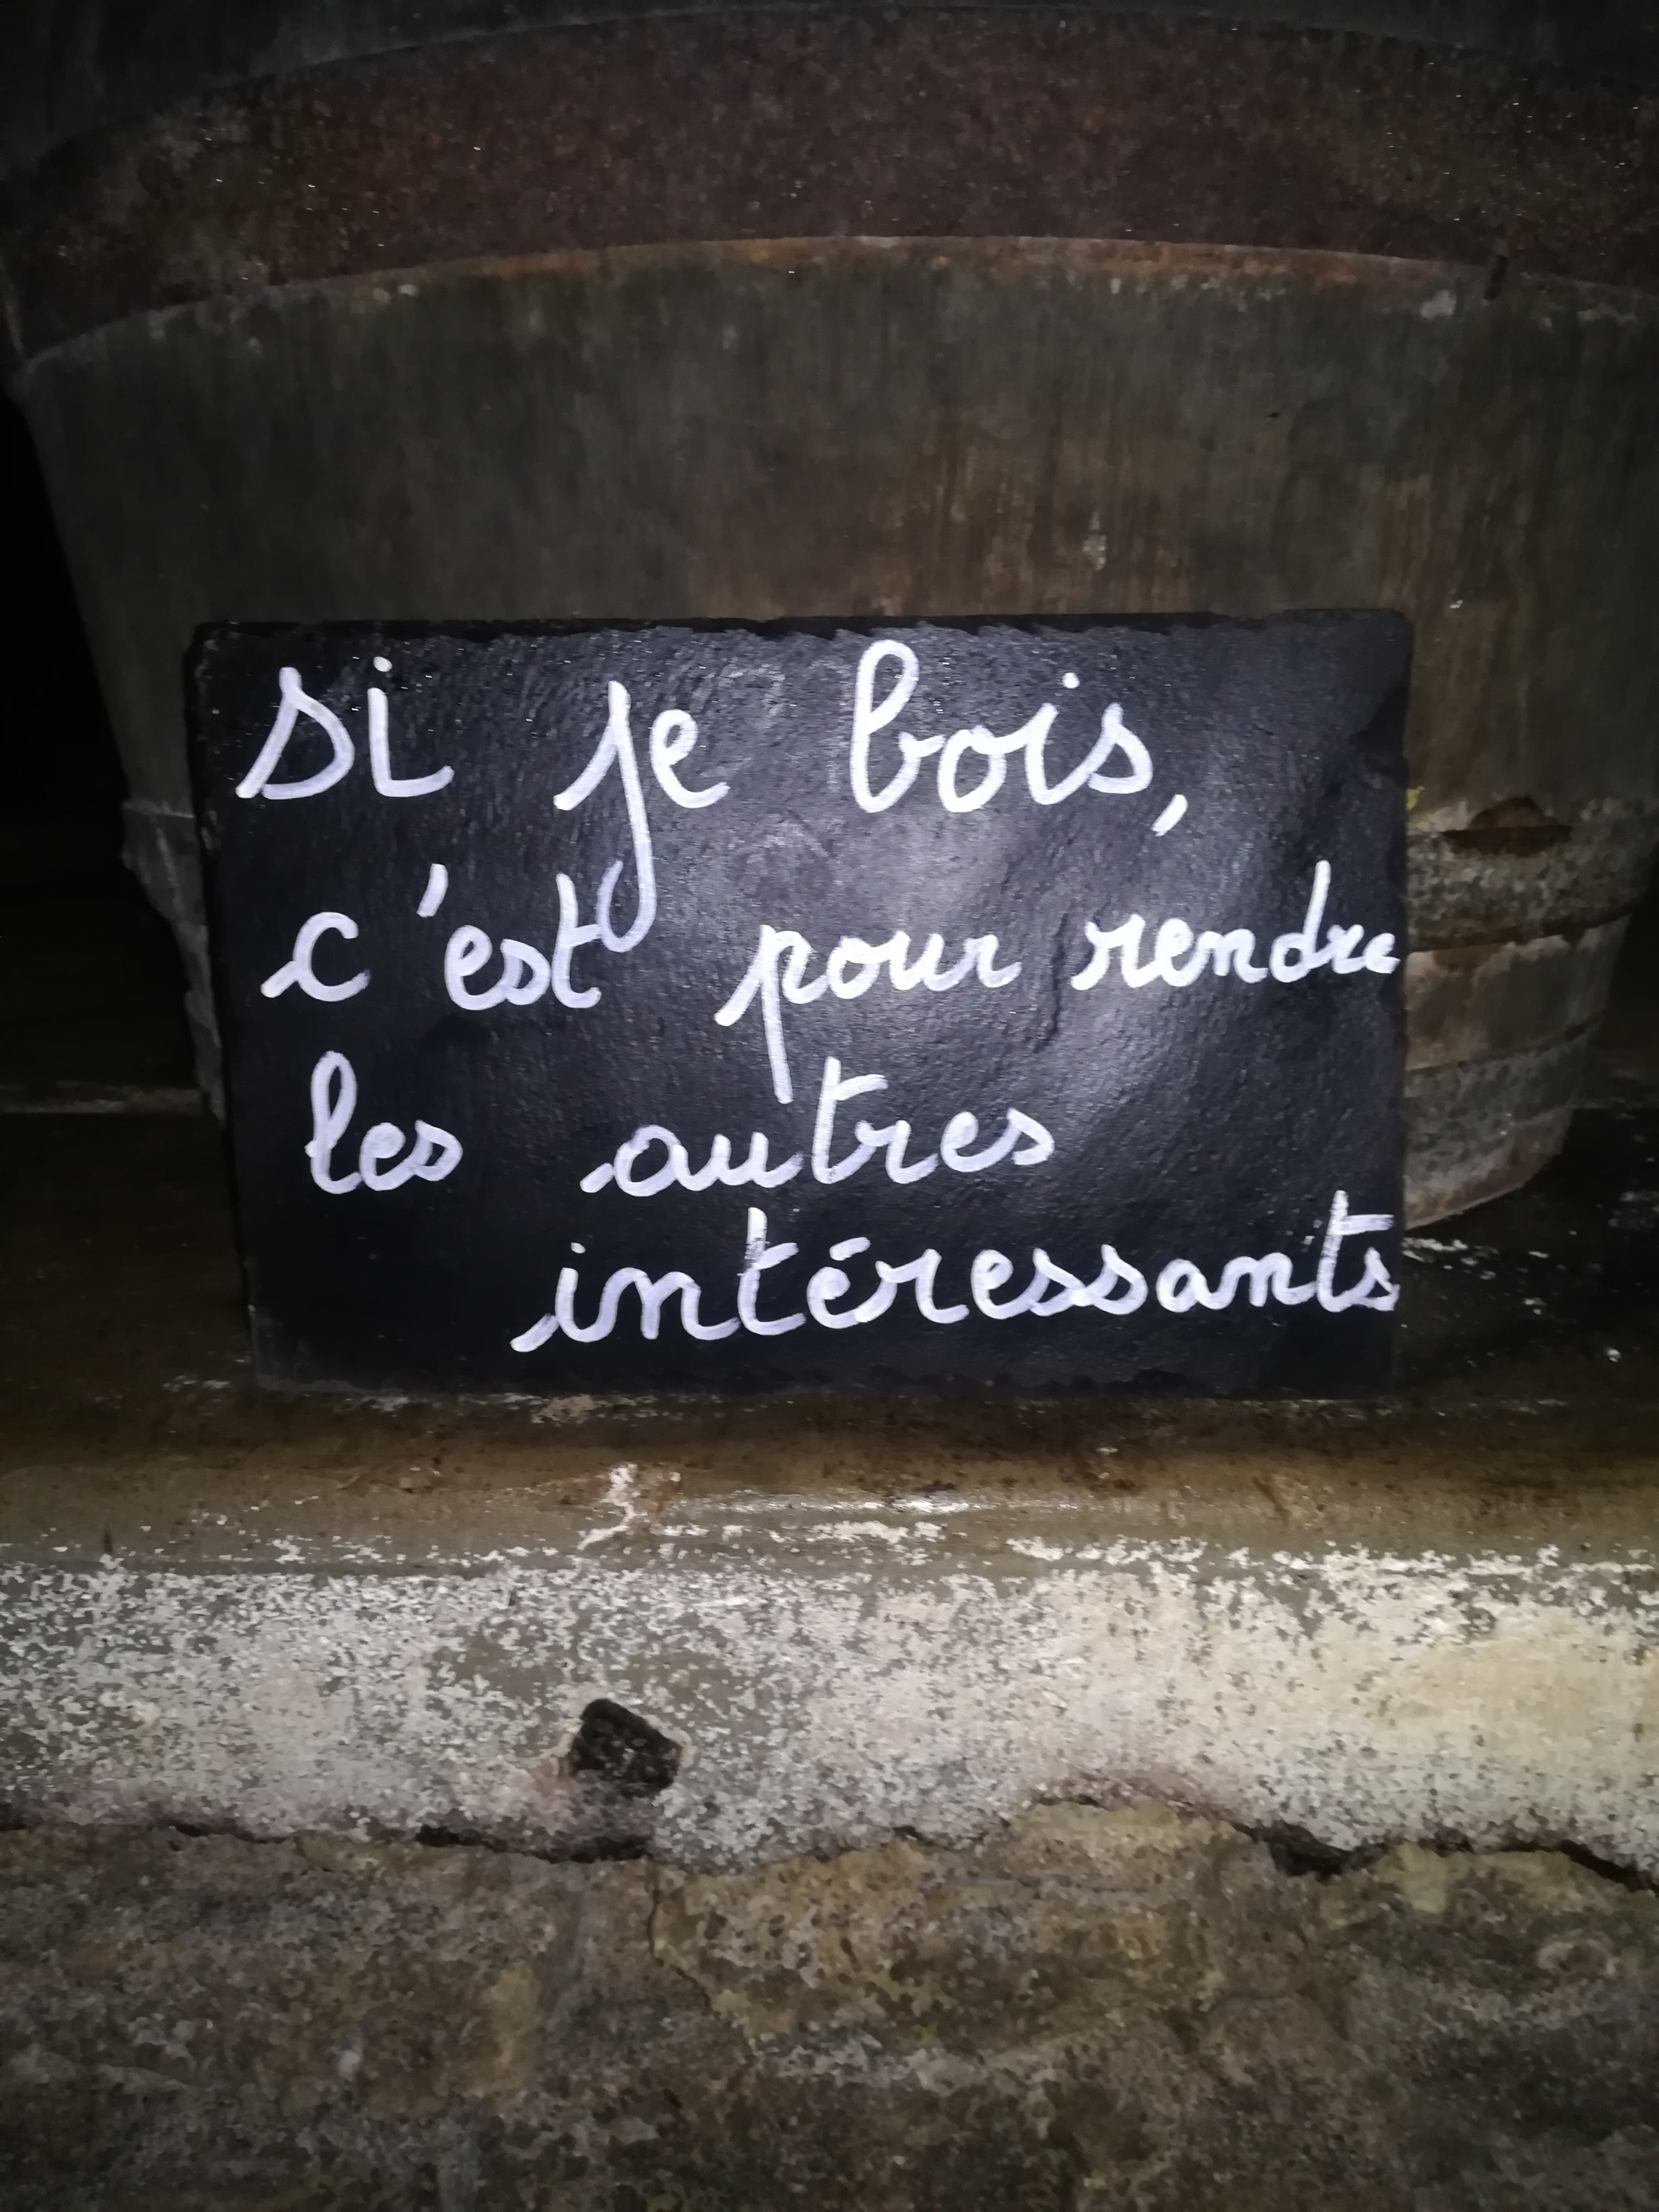 si je bois,
c'est pour rendre
les autres
intéressants